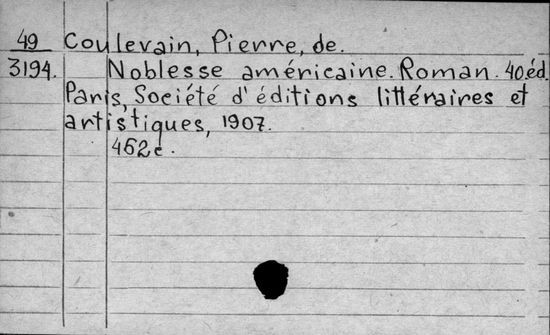 49 Coulevain, Pierre, de.
3194. Noblesse américaine. Roman. 40éd.
Paris, Société d'éditions littéraires et
artistiques, 1907.
462c.